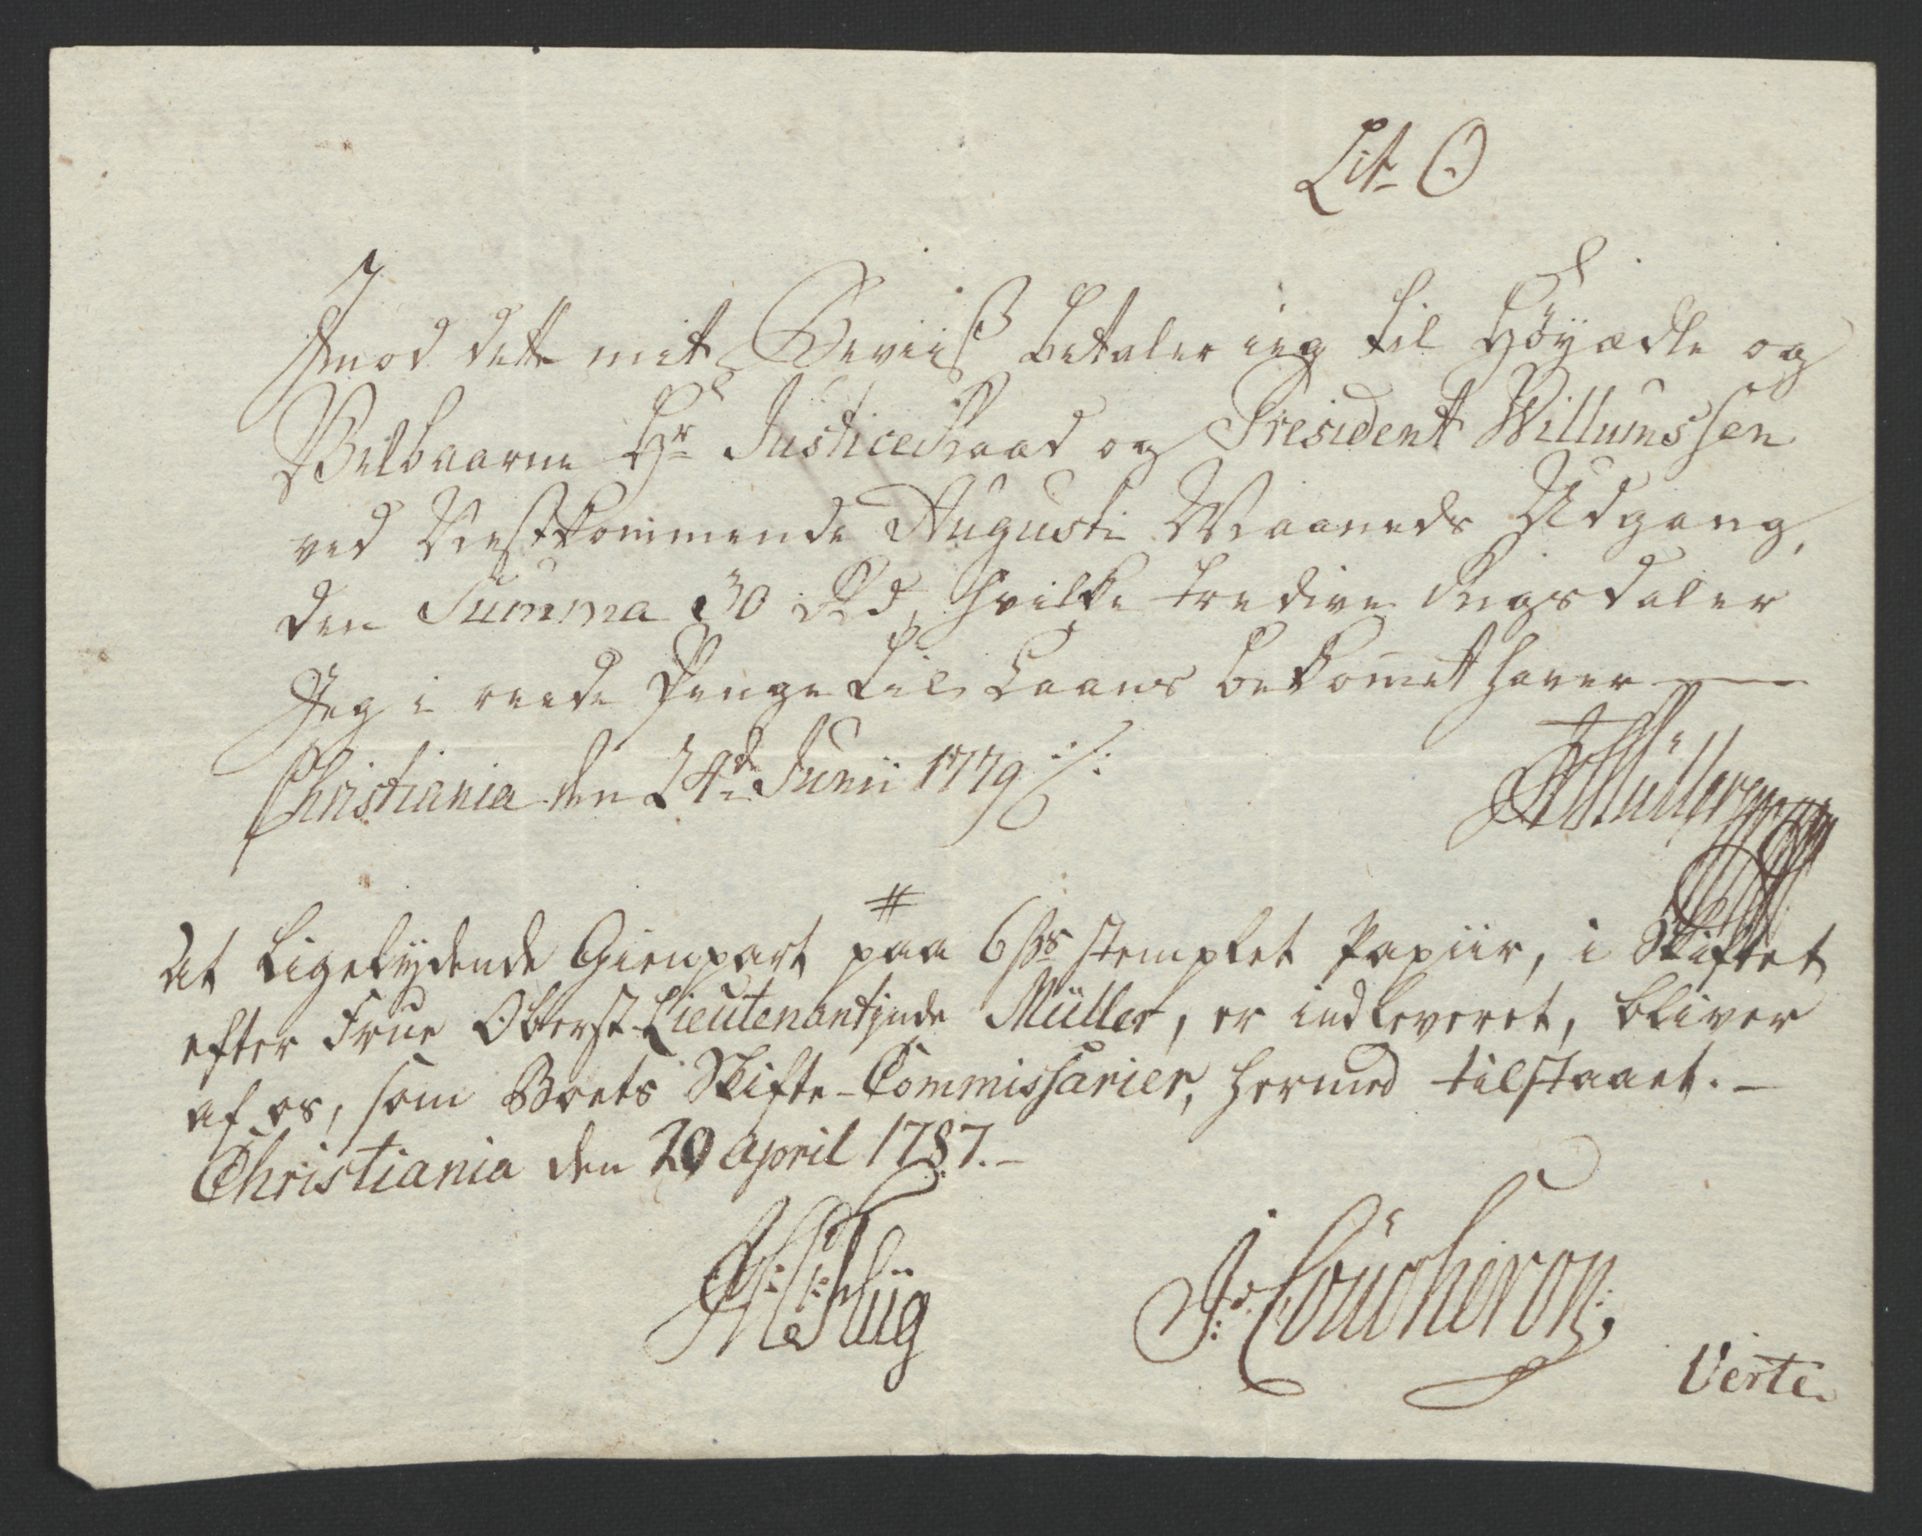 Lit. O
Imod dette mit Beviis betaler ieg til Höyædle og
Velbaarne Hr. Justice Raad og President Willumssen
ved Nestkommende Augusti Maaneds Udgang,
den Summa 30 Rd, hvilke tredive Rigsdaler
Jeg i reede Penge til Laans bekommet haver
Christiania den 24de Junii 1779 ./.
Müller
#
At Ligelÿdende Gienpart paa 6 ß stemplet Papiir, i Skiftet
efter Frue Oberst-Lieutenantinde Müller, er indleveret, bliver
af os, som Boets Skifte-Commissarier, hermed tilstaaet.-
Christiania den 20 April 1787.-
J: Coucheron
Verte.